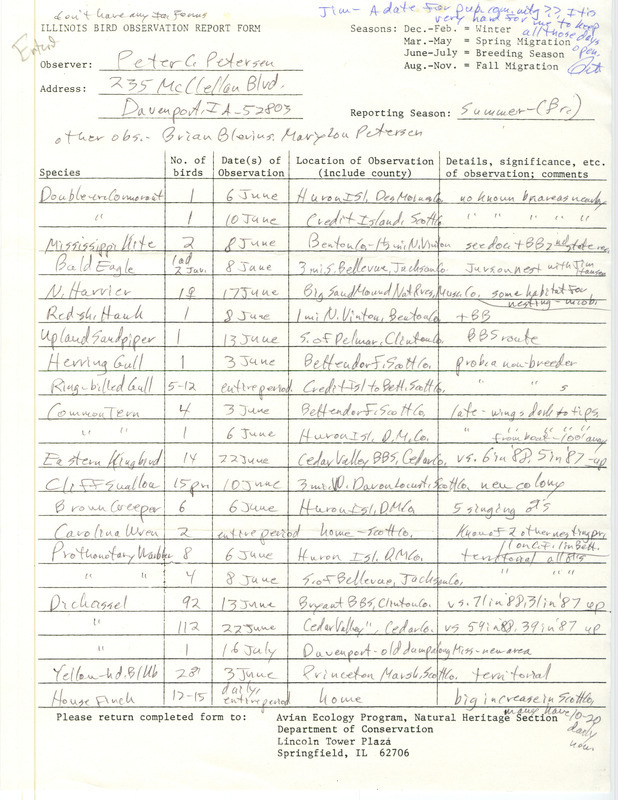 don't have any Ia. forms
Jim- A date for pub. remity?? It is
very hard for me to keep
all those days
open.
Pete
Entered
ILLINOIS BIRD OBSERVATION REPORT FORM
Seasons: Dec.-Feb. = Winter
Mar.-May = Spring Migration
June-July = Breeding Season
Aug.-Nov. = Fall Migration
Observer: Peter C. Petersen
Address: 235 McClellan Blvd.
Davenport, IA - 52803
Reporting Season: Summer-(Br.)
other obs. - Brian Blevins, Marylou Petersen
Species No. of birds Date(s) of Observation Location of Observation (include county) Details, significance, etc. of observation; comments
Double-cr. Cormorant 1 6 June Huron Isl, Des Moines Co. no known br. areas nearby
" 1 10 June Credit Island, Scott Co. " " " "
Mississippi Kite 2 8 June Benton Co - 1½ mi N. Vinton see doc + BB 2nd state rec.
Bald Eagle 1 ad 2 Juv. 8 June 3 mi S. Bellevue, Jackson Co. Juvs on nest with Jim Hansen
N. Harrier 1♀ 17 June Big Sand Mound Nat Rres, Musc Co. some habitat for nesting - mobi
Red sh. Hawk 1 8 June 1 mi N. Vinton, Benton Co +BB
Upland Sandpiper 1 13 June S. of Delmar, Clinton Co. BBS route
Herring Gull 1 3 June Bettendorf, Scott Co. prob. a non-breeder
Ring-billed Gull 5-12 entire period Credit Isl to Bett. Scott Co. " " s
Common Tern 4 3 June Bettendorf, Scott Co. late - wings dark to tips
" " 1 6 June Huron Isl, D.M. Co. " " " from boat - 100' away
Eastern Kingbird 14 22 June Cedar Valley BBS, Cedar Co. vs. 6 in 88, 5 in '87 - up
Cliff Swallow 15 pr 10 June 3 mi. W. Davenport Locust, Scott Co. new colony
Brown Creeper 6 6 June Huron Isl, DM Co 5 singing ♂s
Carolina Wren 2 entire period home - Scott Co. Know of 2 other nesting pr. 1 on C.I. 1 in Bett.
Prothonotary Warbler 8 6 June Huron Isl, DM Co. territorial all ♂s
" " 4 8 June S. of Bellevue, Jackson Co. " " "
Dickcissel 92 13 June Bryant BBS, Clinton Co. vs. 71 in '88, 31 in '87 up
" 112 22 June Cedar Valley ", Cedar Co. vs 59 in 88, 39 in '87 up
" 1 1.6 July Davenport - old dump along Miss - new area
Yellow-hd. Bl kb 2♂1 3 June Princeton Marsh, Scott Co. territorial
House Finch 12-15 daily, entire period home big increase in Scott Co, many have 10-20 daily now
Please return completed form to: Avian Ecology Program, Natural Heritage Section
Department of Conservation
Lincoln Tower Plaza
Springfield, IL 62706